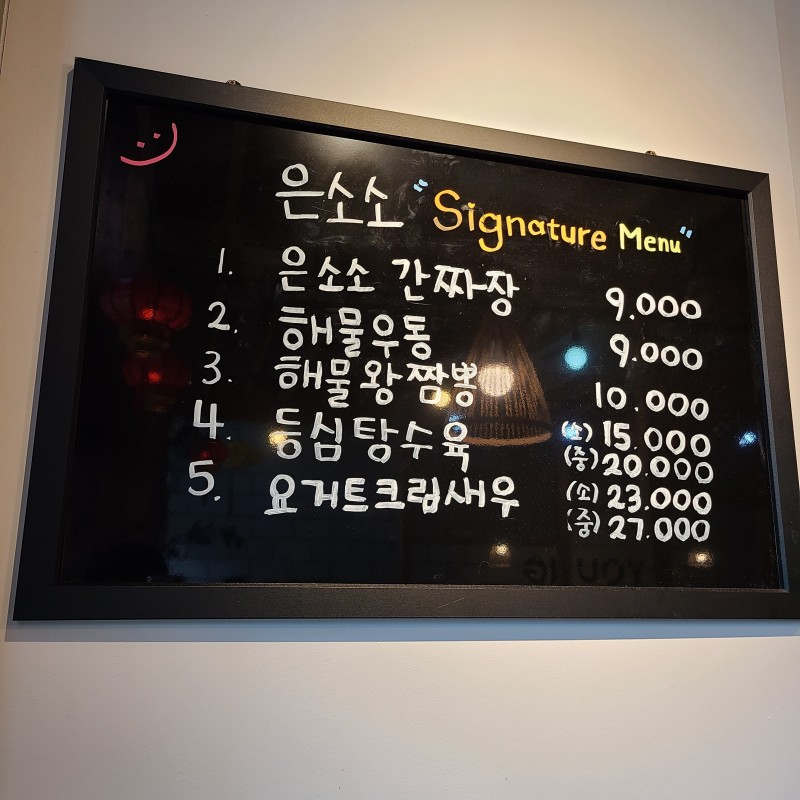 은소소 "Signature Menu"
1. 은소소 간짜장 9.000
2. 해물우동 9.000
3. 해물왕짬뽕 10.000
4. 등심탕수육 (소) 15.000
(중) 20.000
5. 요거트크림새우 (소) 23.000
(중) 27.000